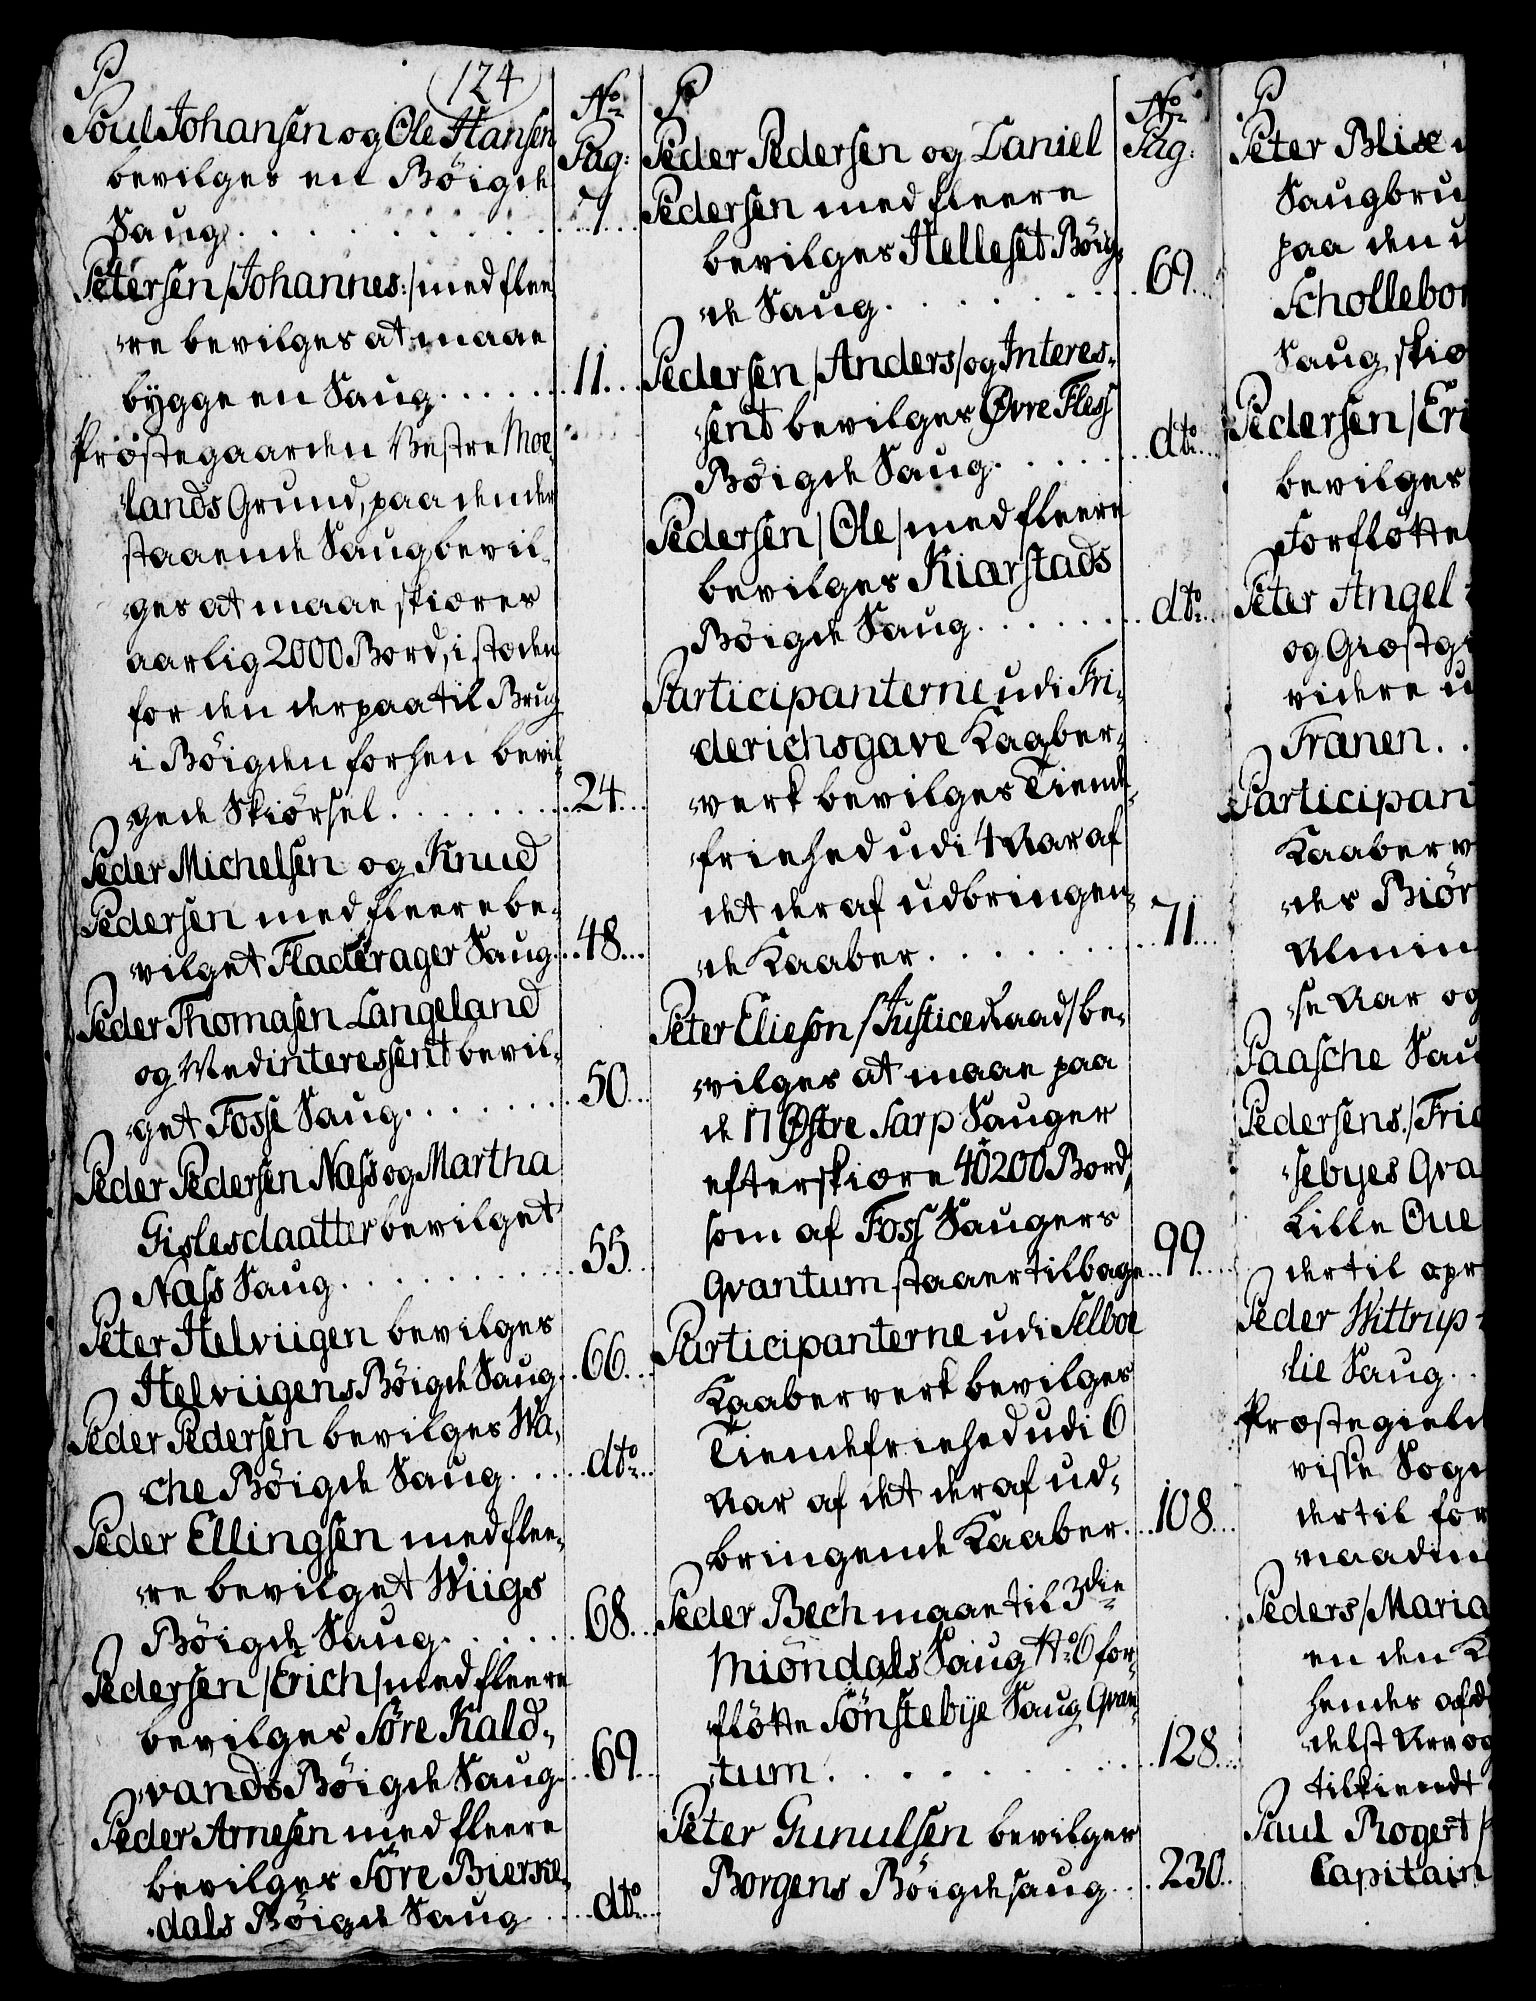 P
124
No
Pag:
Poul Johansen og Ole Hansen
bevilges en Böigde
Saug . . . . . . . . . . 7
Petersen /Johannes:/ med flee
re bevilges at maae
bygge en Saug . . . . . . 11
Præstegaarden Vestre Moe-
lands Grund, paa den der
staaende Saug bevil-
ges at maae skiæres
aarlig 2000 Bord, i stæden
for den derpaa til Brug
i Böigden forhen bevil
gede Skiörsel . . . . . . 24
Peder Michelsen og Knud
Pedersen med fleere be-
vilget Fladerager Saug . . 48
Peder Thomasen Langeland
og Medinteressent bevil-
get Fosse Saug . . . . . . 50
Peder Pedersen Næss og Martha
Gislesdaatter bevilget
Næss Saug . . . . . . . . 55
Peter Helviigen bevilges
Helviigens Böigde Saug . . 66
Peder Pedersen bevilges Wa-
che Böigde Saug . . . . . dto
Peder Ellingsen med flee-
re bevilget Wiigs
Böigde Saug . . . . . . 68
Pedersen /Erich/ med fleere
bevilges Söre Kald-
vands Böigde Saug . . 69
Peder Arnesen med fleere
bevilges Söre Bierke-
dals Böigde Saug . . . dto
P
No
Pag:
Peder Pedersen og Daniel
Pedersen med fleere
bevilges Helleset Böig-
de Saug . . . . . . . . 69
Pedersen /Anders/ og Interes-
sent bevilges Øvre Fless
Böigde Saug . . . . . . dto
Pedersen /Ole/ med fleere
bevilges Kiærstads
Böigde Saug . . . . . . dto
Participanterne udi Fri-
derichsgave Kaaber-
verk bevilges Tiende-
friehed udi 4 Aar af
det deraf udbringen-
de Kaaber . . . . . . . 71
Peter Elieson /JusticeRaad/ be-
vilges at maae paa
de 17 Østre Sarp Sauger
efterskiære 40200 Bord,
som af Foss Saugers
Qvantum staaer tilbage . . 99
Participanterne udi Selboe
Kaaberverk bevilges
Tiendefriehed udi 6
Aar af det deraf ud-
bringende Kaaber . . 108
Peder Bech maae til 3die
Miöndals Saug No 6 for-
flötte Sönstebye Saug Qvan-
tum . . . . . . . . . 128
Peter Gunulsen bevilges
Borgens Böigdesaug . . 230
P
Peter Blix
Saugbru
paa den
Schollebor
Saug skiæ
Pedersen /Eri
bevilges
Forflötte
Peter Angel
og Giæstg
videre u
Franen . .
Participant
Kaaberv
des Biör
Almin
se Aar og
Paasche Sau
Pedersens /Frid
sebyes Qva
Lille Oue
dertil opr
Peder Wittrup
lie Saug . .
Præstegield
visse Sogn
dertil for
naadin
Peders /Maria
en den K
hendes afd
delst Arv og
tilkiendt
Paul Rogert /
Capitain